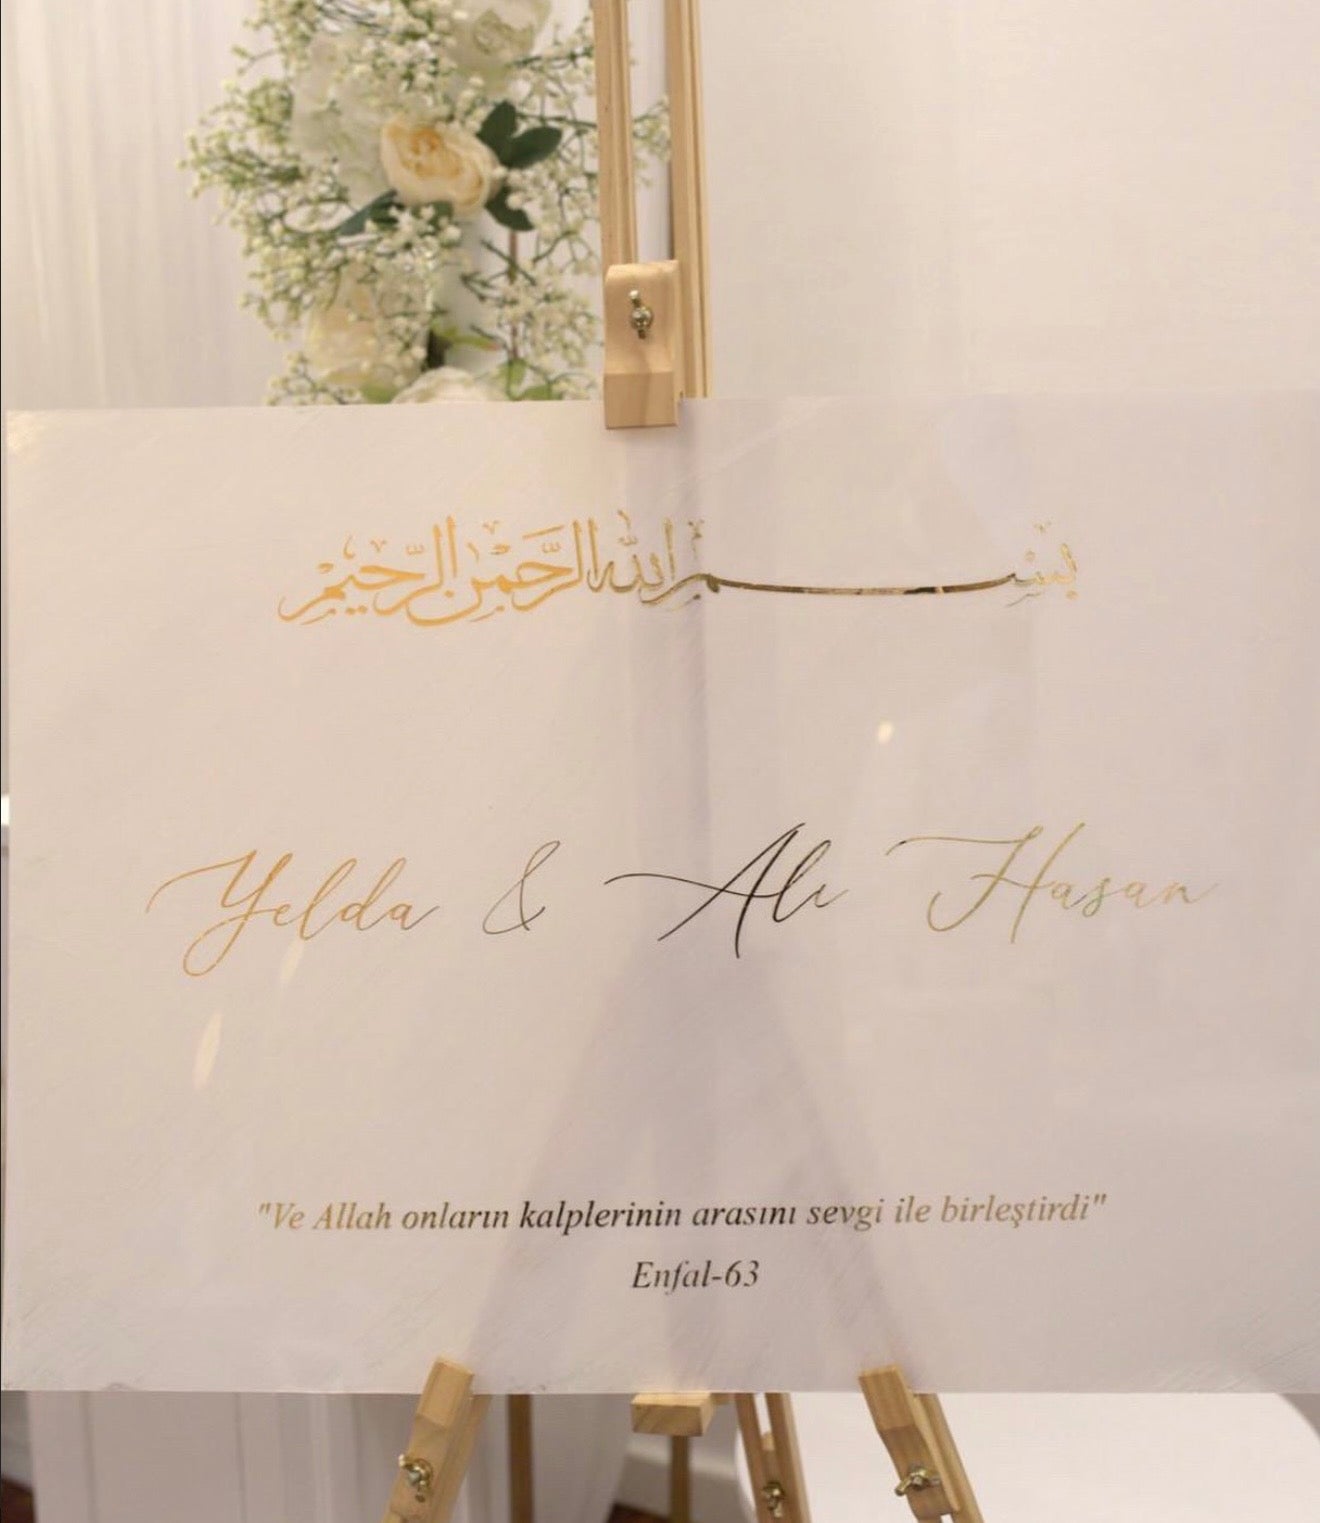 بِسْمِ اللهِ الرَّحْمٰنِ الرَّحِيْمِ
Yelda & Ali Hasan
"Ve Allah onların kalplerinin arasını sevgi ile birleştirdi"
Enfal-63